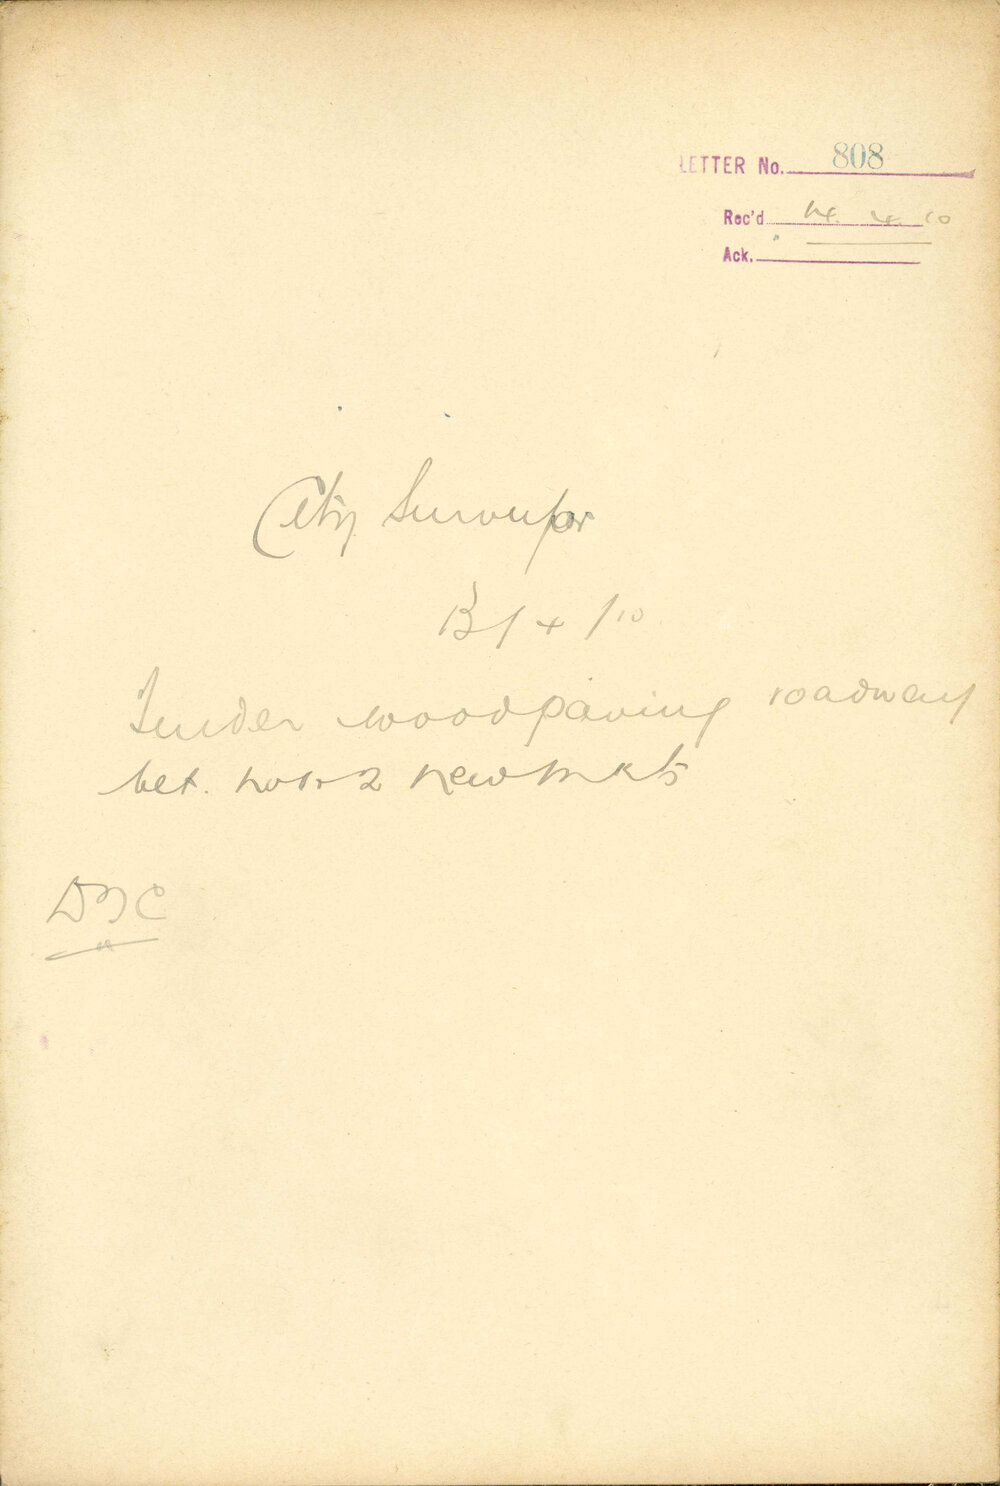 LETTER No. 808
Rec'd 14. 4. 10
Ack.
City Surveyor
13/4/10
Tender woodpaving roadway
bet. Nos 1 & 2 new mkts